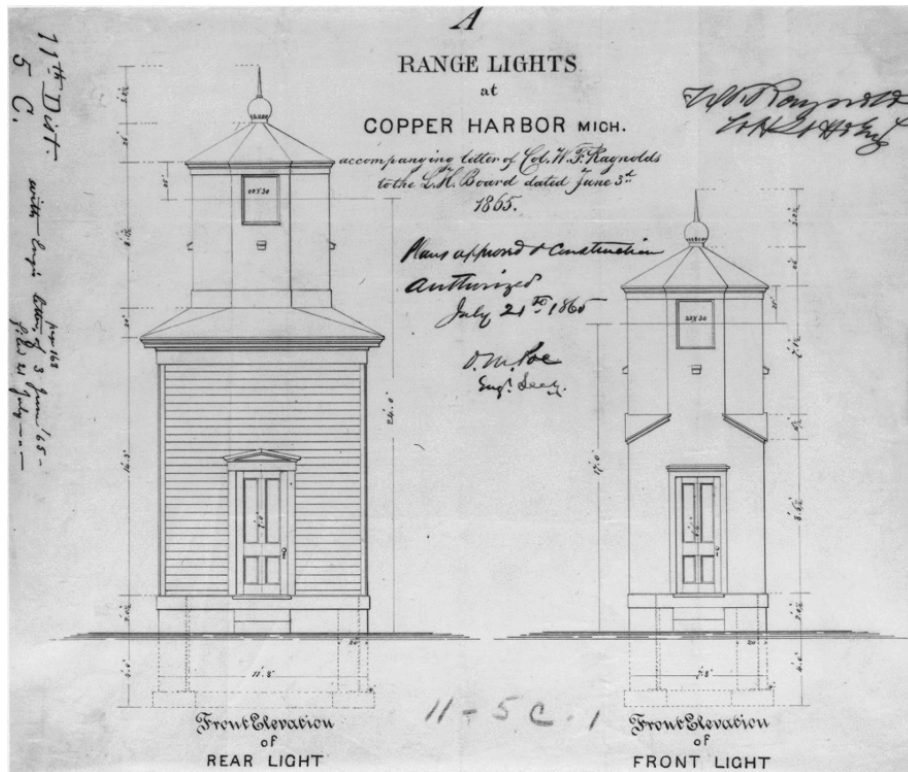 A
RANGE LIGHTS
at
COPPER HARBOR MICH.
accompanying letter of Col. W. F. Raynolds
to the L. H. Board dated June 3d
1865.
Plans approved & Construction
authorized
July 21st 1865
O. M. Poe
Engr. Secy.
W. F. Raynolds
11th Dist
5 C.
with Engr letter of 3 June '65 -
page 168
filed 21 July
20 X 30
20 X 30
24.0'
17.0'
11'.8"
7'.8"
11 - 5 C. 1
Front Elevation
of
REAR LIGHT
Front Elevation
of
FRONT LIGHT